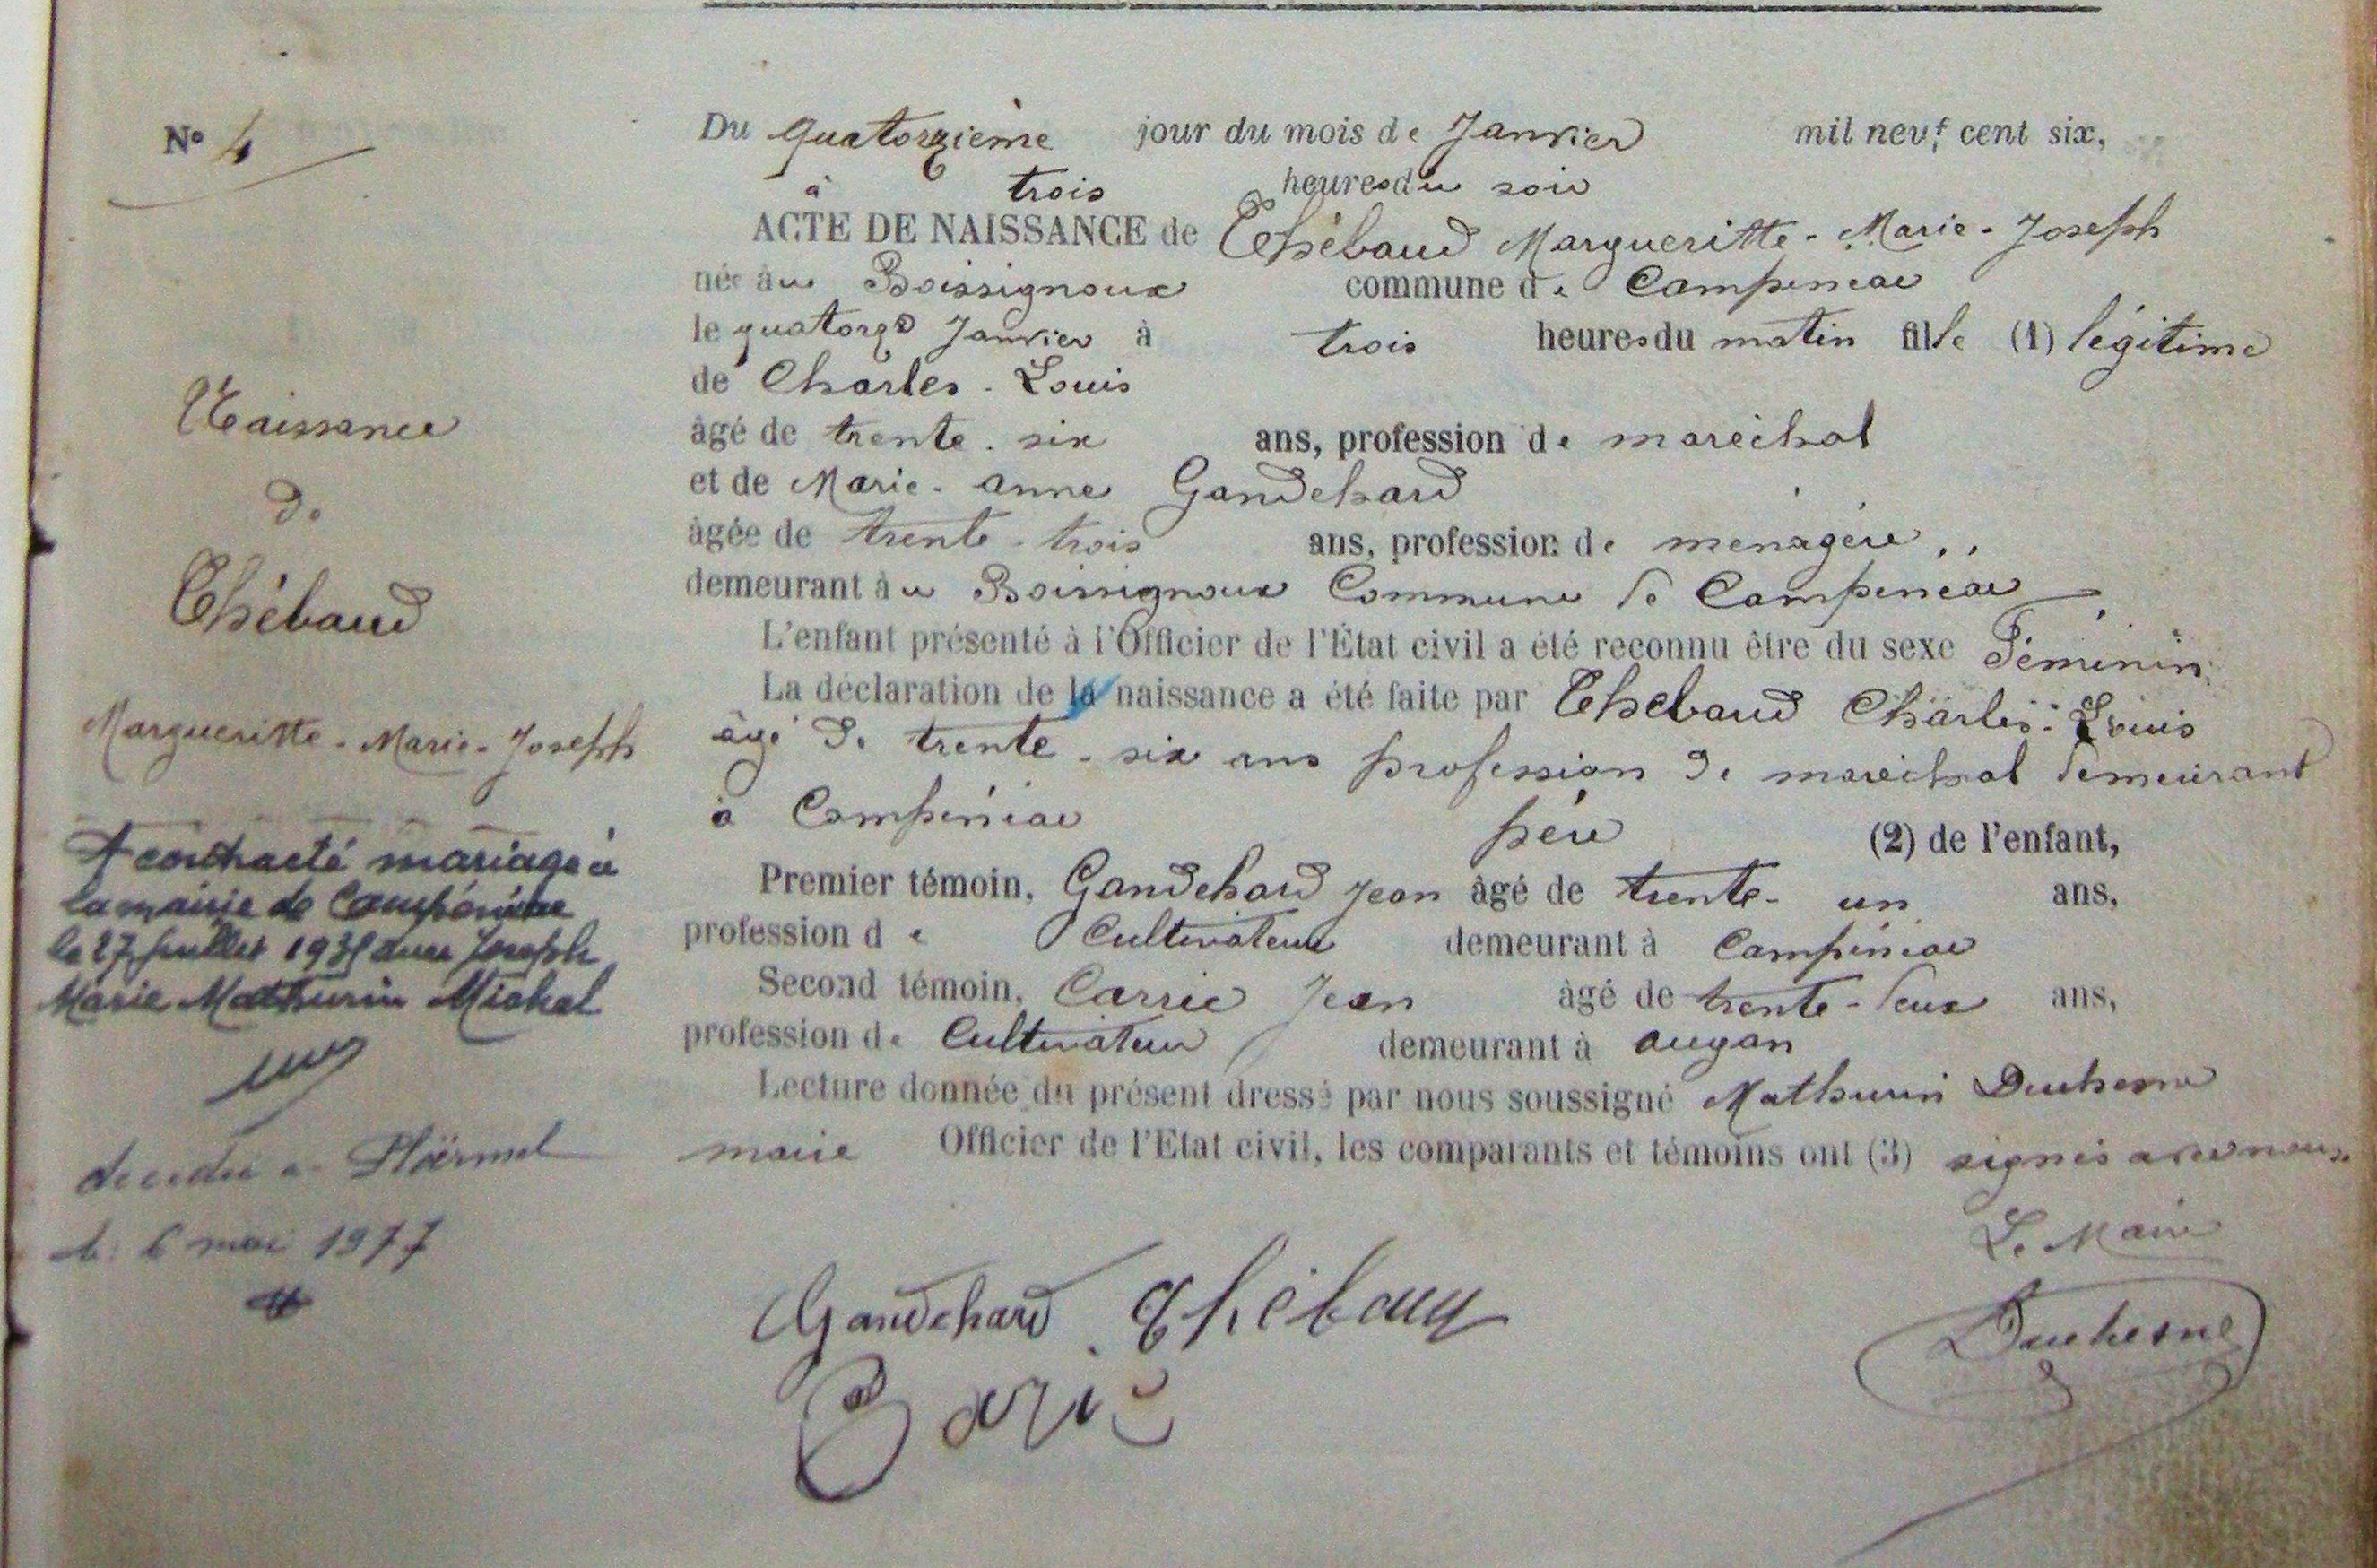 N° 4
Naissance
de
Thébaud
Margueritte - Marie - Joseph
A contracté mariage à
la mairie de Campénéac
le 27 juillet 193 avec Joseph
Marie Mathurin Michel
décédée à Ploërmel
le 6 mai 1977
Du quatorzième jour du mois de Janvier mil neuf cent six,
à trois heures du soir
ACTE DE NAISSANCE de Thébaud Margueritte - Marie - Joseph
née au Boissignoux commune de Campeneac
le quatorze Janvier à trois heures du matin fille (1) légitime
de Charles - Louis
âgé de trente - six ans, profession de maréchal
et de Marie - anne Gandehard
âgée de trente - trois ans, profession de ménagère
demeurant au Boissignoux Commune de Campénéac
L'enfant présenté à l'Officier de l'État civil a été reconnu être du sexe Féminin
La déclaration de la naissance a été faite par Thebaud Charles - Louis
âgé de trente - six ans profession de maréchal demeurant
à Campénéac père (2) de l'enfant,
Premier témoin, Gandehard Jean âgé de trente - un ans,
profession de Cultivateur demeurant à Campénéac
Second témoin, Carric Jean âgé de trente - deux ans,
profession de Cultivateur demeurant à augan
Lecture donnée du présent dressé par nous soussigné Mathurin Duchesne
maire Officier de l'Etat civil, les comparants et témoins ont (3) signés avec nous.
Le Maire
Gandehard Thébaud
Duchesne